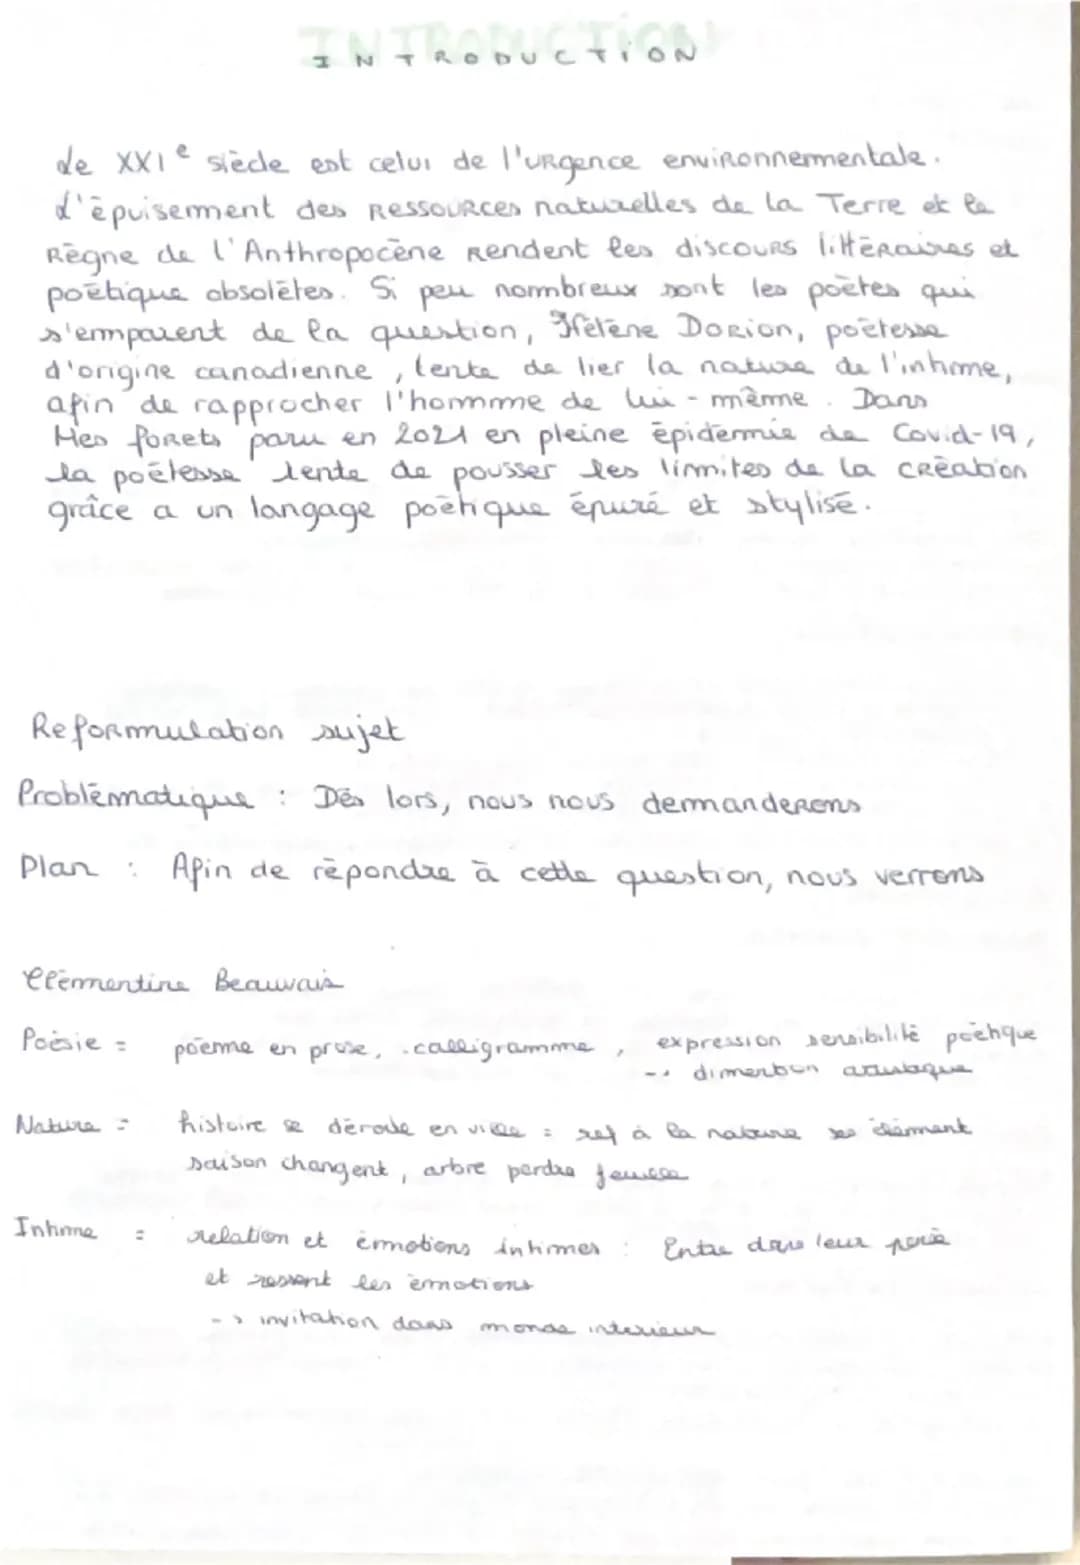 INTRODUCTION
Le XXIe siècle est celui de l'urgence environnementale.
L'épuisement des ressources naturelles de la Terre et le
Règne de l'Anthropocène rendent les discours littéraires et
poétique obsolètes. Si peu nombreux sont les poètes qui
s'emparent de la question, Hélène Dorion, poétesse
d'origine canadienne, tente de lier la nature de l'intime,
afin de rapprocher l'homme de lui-même. Dans
Mes forêts paru en 2021 en pleine épidémie de Covid-19,
la poétesse tente de pousser les limites de la création
grâce a un langage poétique épuré et stylisé.
Reformulation sujet
Problématique : Dès lors, nous nous demanderons
Plan : Afin de répondre à cette question, nous verrons
Clémentine Beauvais
Poésie = poème en prose, calligramme, expression sensibilité poétique
-> dimension artistique
Nature = histoire se déroule en ville = ref à la nature élément
saison changent, arbre perdre feuille
Intime = relation et émotions intimes : Entre dans leur
et ressent les émotions
-> invitation dans monde intérieur